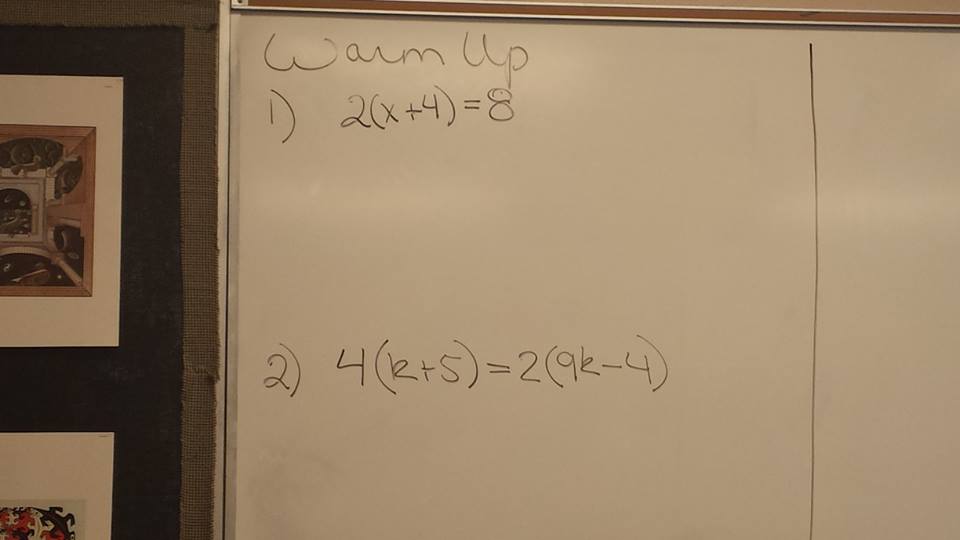 Warm Up
1) 2(x+4)=8
2) 4(k+5)=2(9k-4)